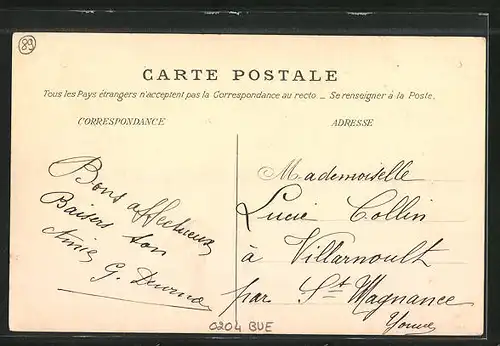 89
CARTE POSTALE
Tous les Pays étrangers n'acceptent pas la Correspondance au recto _ Se renseigner à la Poste.
CORRESPONDANCE
ADRESSE
Bons affectueux
Baisers ton
Amie
G.
Mademoiselle
Lucie Collin
à Villarnoult
par St Magnance
Yonne
0204 BUE